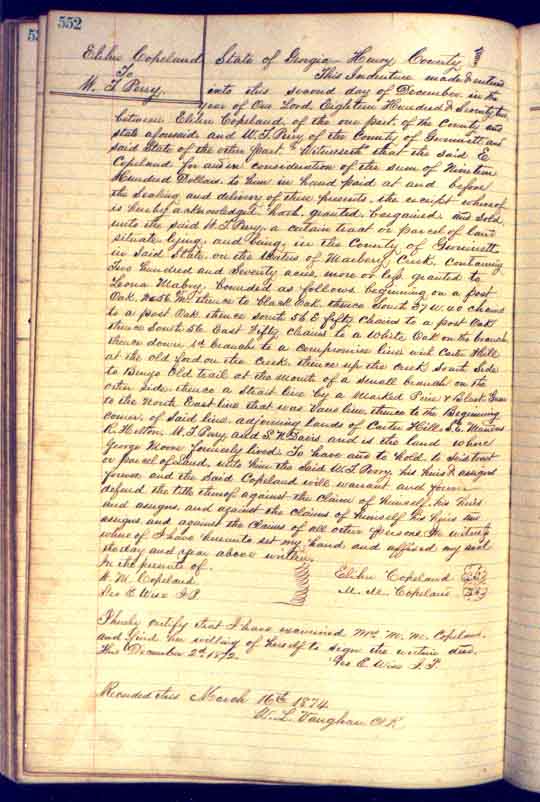 552
Elihu Copeland State of Georgia Henry County
To This Indenture made & entered
W. T. Perry. into this second day of December in the
year of Our Lord Eighteen Hundred & Seventy two
between Elihu Copeland of the one part of the County and
State aforesaid and W. T. Perry of the County of Gwinnett and
said State of the other part Witnesseth that the said E
Copeland for and in consideration of the sum of Nineteen
Hundred Dollars to him in hand paid at and before
the Sealing and delivery of these presents, the receipt whereof
is hereby acknowledged hath granted, bargained and Sold
unto the said W. T. Perry, a certain tract or parcel of land
situate lying and being in the County of Gwinnett
in said State on the waters of Creek. Containing
Two Hundred and Seventy acres more or less granted to
Leona Mabry. bounded as follows beginning on a post
Oak. thence to Black Oak. thence South 37 W. 40 chains
to a post Oak thence South 56 E fifty chains to a post Oak
thence South 56 East Fifty chains to a White Oak on the branch
thence down sd branch to a compromise line with Carter Hill
at the old ford on the creek. thence up the creek South Side
to Old trail at the mouth of a small branch on the
other side. thence a Strait line by a Marked Pine & Black Gum
to the North East line that was line. thence to the Beginning
corner of said line. adjoining lands of Carter Hill
R. Helton, W. T. Perry and S. N. and is the land where
George Moore formerly lived To have and to hold sd tract
or parcel of Land, unto him the Said W. T. Perry his heirs & assigns
forever and the said Copeland will warrant and forever
defend the title thereof against the claim of himself, his heirs
and assigns, and against the claims of himself his heirs and
assigns and against the claims of all other persons In witness
where of I have hereunto set my hand and affixed my seal
the day and year above written.
In the presents of. Elihu Copeland
W. M. Copeland M. M. Copeland
Geo E Wise J.P.
I hereby certify that I have examined Mrs M. M. Copeland.
and find her willing of herself to sign the within deed.
This December 2d 1872. Geo E Wise J.P.
Recorded this March 16th 1874
W. L. Vaughan Clk